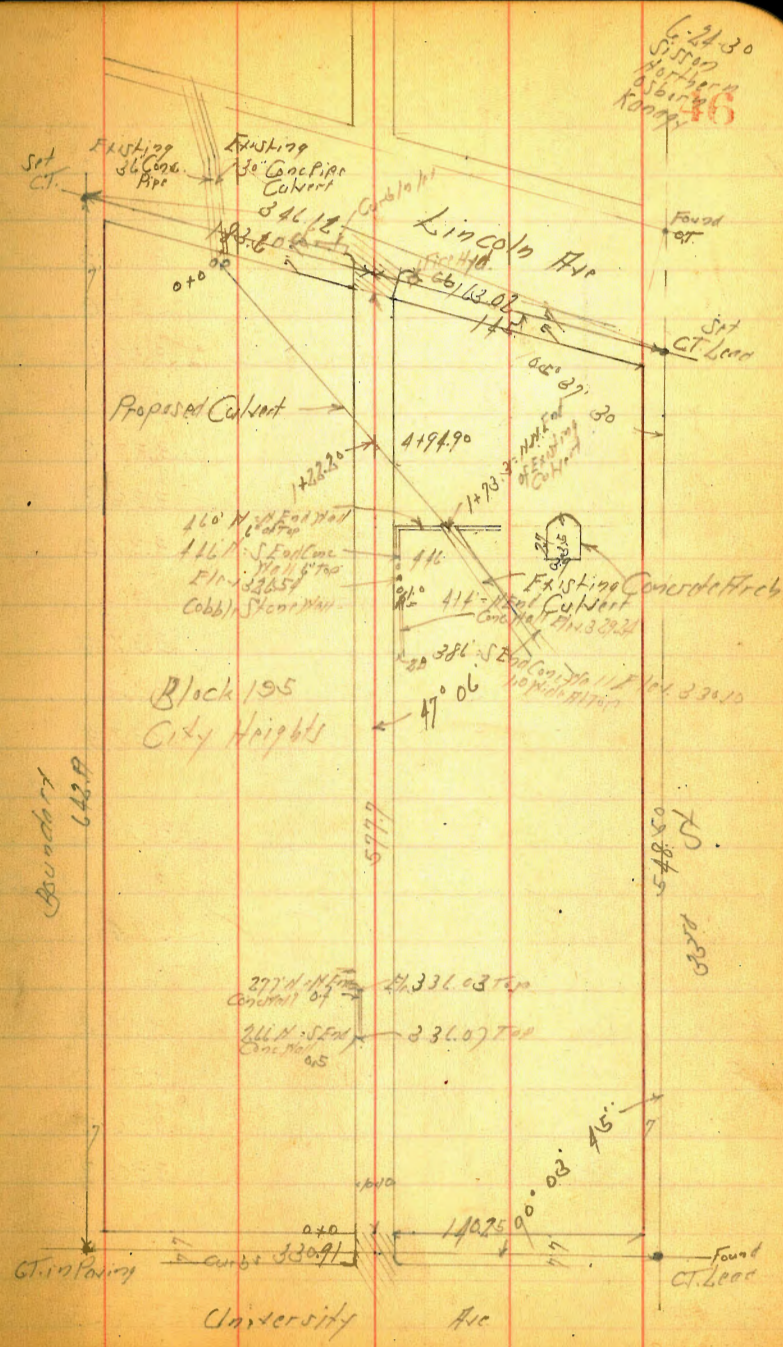 6-24-30
Sisson
Northern
Osborn
Kanagy
46
Set
C.T.
Existing
36" Conc.
Pipe
Existing
30" Conc Pipe
Culvert
346.12
Curb Inlet
Lincoln Ave
Found
C.T.
183.10
0+0
Fire Hyd.
163.02
145
Set
C.T. Lead
Proposed Culvert
4+94.90
1+22.20
1+73.3 = N.W. End
of Existing
Culvert
37' 30
460' N = N End Wall
6" at Top
446 N = S End Conc
Wall 6" Top
Elev. 326.54
Cobble Stone Wall
446
27
Existing
Culvert
Concrete Arch
414 - N End
Conc Wall Elev. 329.24
386 - S End Conc Wall Elev. 330.10
1.0 Wide At Top
47° 06
Block 195
City Heights
Boundary
642.17
577.7
548.50
33rd St
277 N = N End
Conc Wall 0.4
El. 336.03 Top
266 N = S End
Conc Wall
0.5
336.07 Top
7
7
90° 03' 45"
0+0
140.25
77
77
C.T. in Paving
Curbs 330.91
Found
C.T. Lead
University Ave